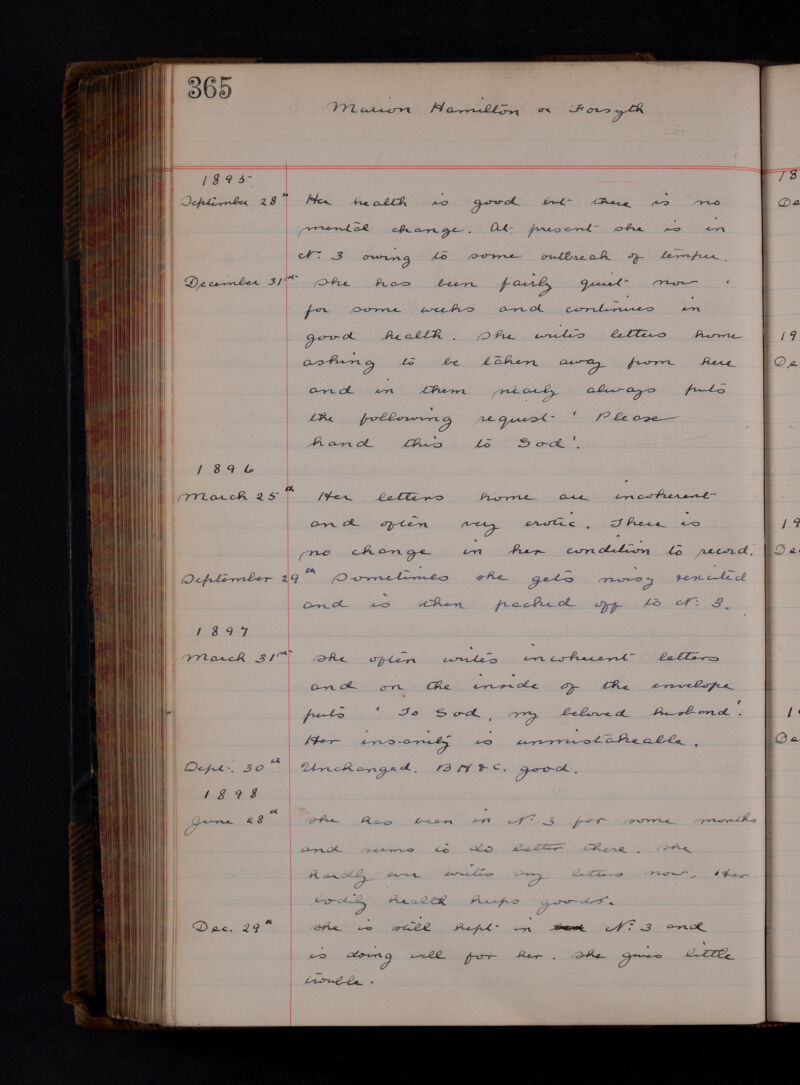 365
Marion Hamilton or Forsyth
1895
September 28th Her health is good but there is no
mental change. At present she is in
No. 3 owing to some outbreak of temper.
December 31st She has been fairly quiet now
for some weeks and continues in
good health. She writes letters home
asking to be taken away from here
and in them nearly always puts
the following request- 'Please
hand this to God'.
1896
March 25th Her letters home are incoherent
and often very erotic. There is
no change in her condition to record.
September 29th Sometimes she gets noisy & excited
and is then packed off to No. 3.
1897
March 31st She often writes incoherent letters
and on the inside of the envelope
puts 'To God, my beloved husband'.
Her insanity is unmistakeable.
Sept. 30th Unchanged. B H & C. good.
1898
June 28th She has been in No. 3 for some months
and seems to do better there. She
hardly ever writes any letters now. Her
bodily health keeps good.
Dec. 29th She is still kept in No. 3 and
is doing well for her. She gives little
trouble.
18
De
19
De
19
De
1
De